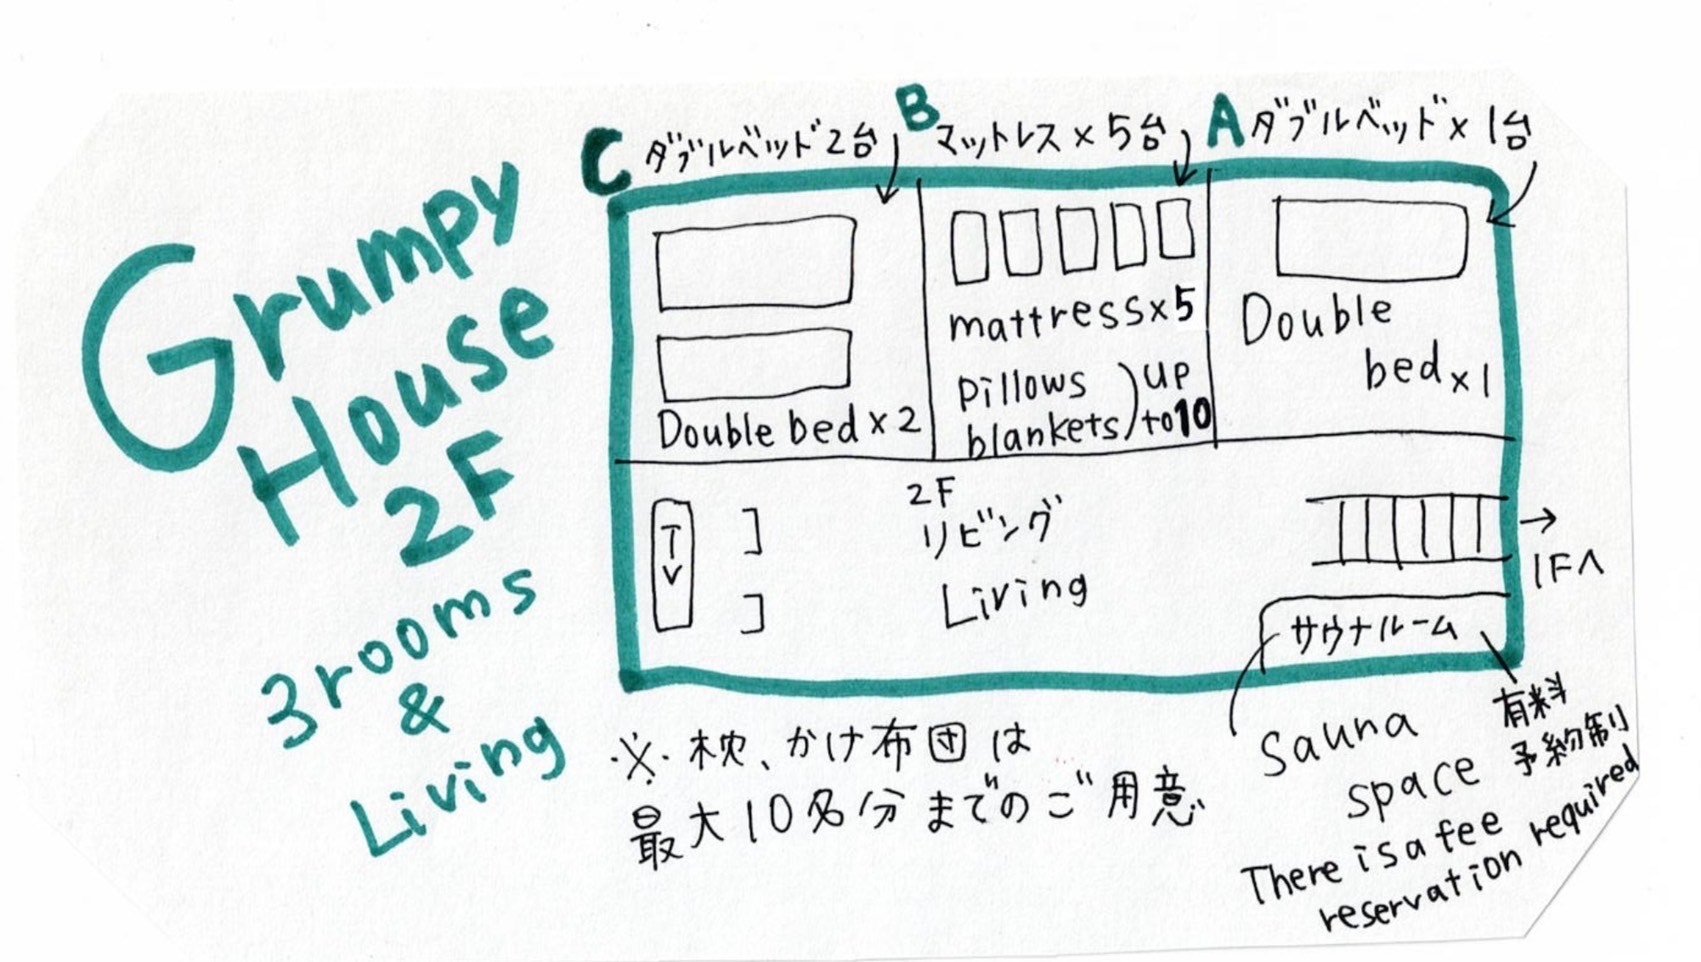 Grumpy
House
2F
3rooms
&
Living
C ダブルベッド2台
B マットレス×5台
A ダブルベッド×1台
Double bed×2
mattress×5
pillows
blankets
)up
to10
Double
bed×1
TV
2F
リビング
Living
→
1Fへ
サウナルーム
Sauna
space
有料
予約制
There is a fee
reservation required
※枕、かけ布団は
最大10名分までのご用意